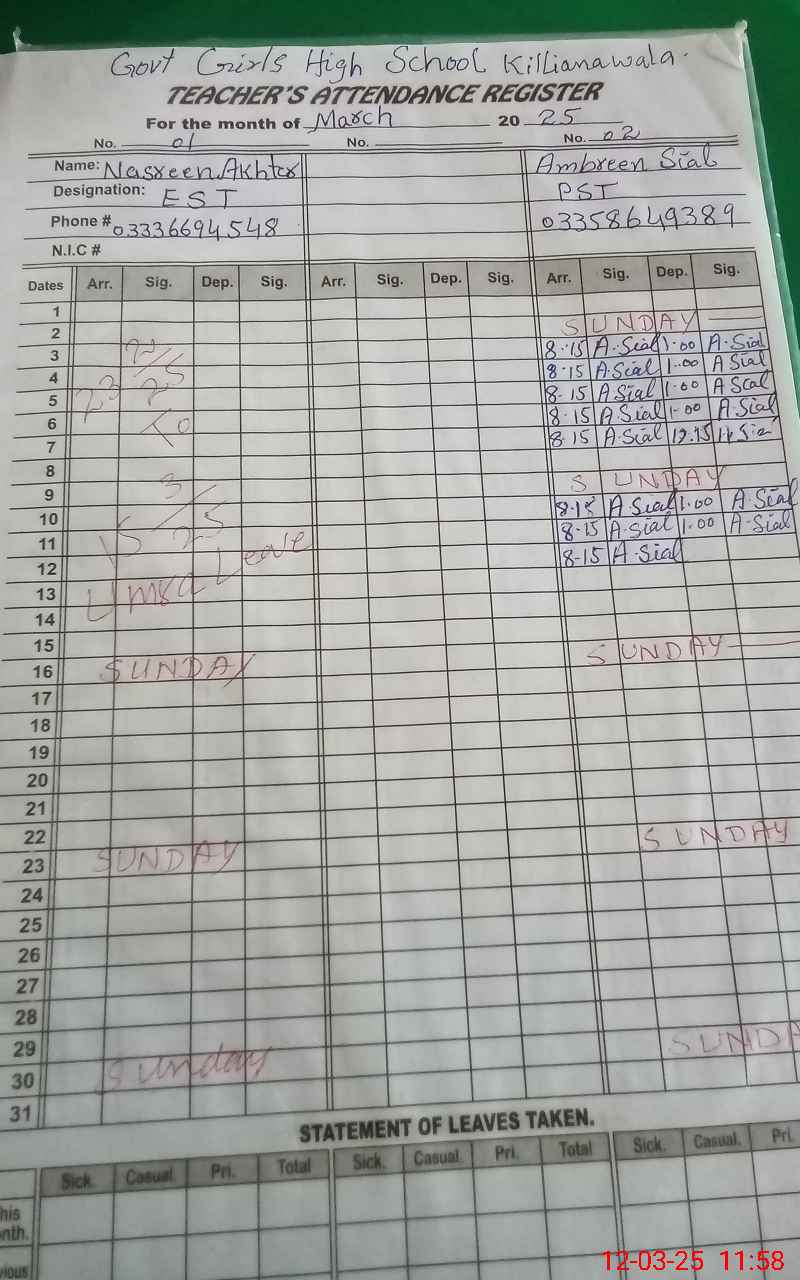 Govt Girls High School Killianawala.
TEACHER'S ATTENDANCE REGISTER
For the month of March 2025
No. 01 No. No. 02
Name: Nasreen Akhter Ambreen Sial
Designation: EST PST
Phone # 03336694548 03358649389
N.I.C #
Dates Arr. Sig. Dep. Sig. Arr. Sig. Dep. Sig. Arr. Sig. Dep. Sig.
1
2 SUNDAY
3 8-15 A.Sial 1.00 A.Sial
4 8-15 A.Sial 1.00 A Sial
5 8-15 A.Sial 1.00 A Sial
6 8-15 A.Sial 1.00 A.Sial
7 8-15 A.Sial 12.15 A.Sial
8
9 SUNDAY
10 8-15 A.Sial 1.00 A.Sial
11 8-15 A.Sial 1.00 A.Sial
12 8-15 A.Sial
23/2/25
To
15/3/25
Umra Leave
13
14
15
16 SUNDAY SUNDAY
17
18
19
20
21
22
23 SUNDAY SUNDAY
24
25
26
27
28
29
30 Sunday SUNDA
31
STATEMENT OF LEAVES TAKEN.
Sick. Casual. Pri. Total Sick. Casual. Pri. Total Sick. Casual. Pri.
his
nth.
vious
12-03-25 11:58